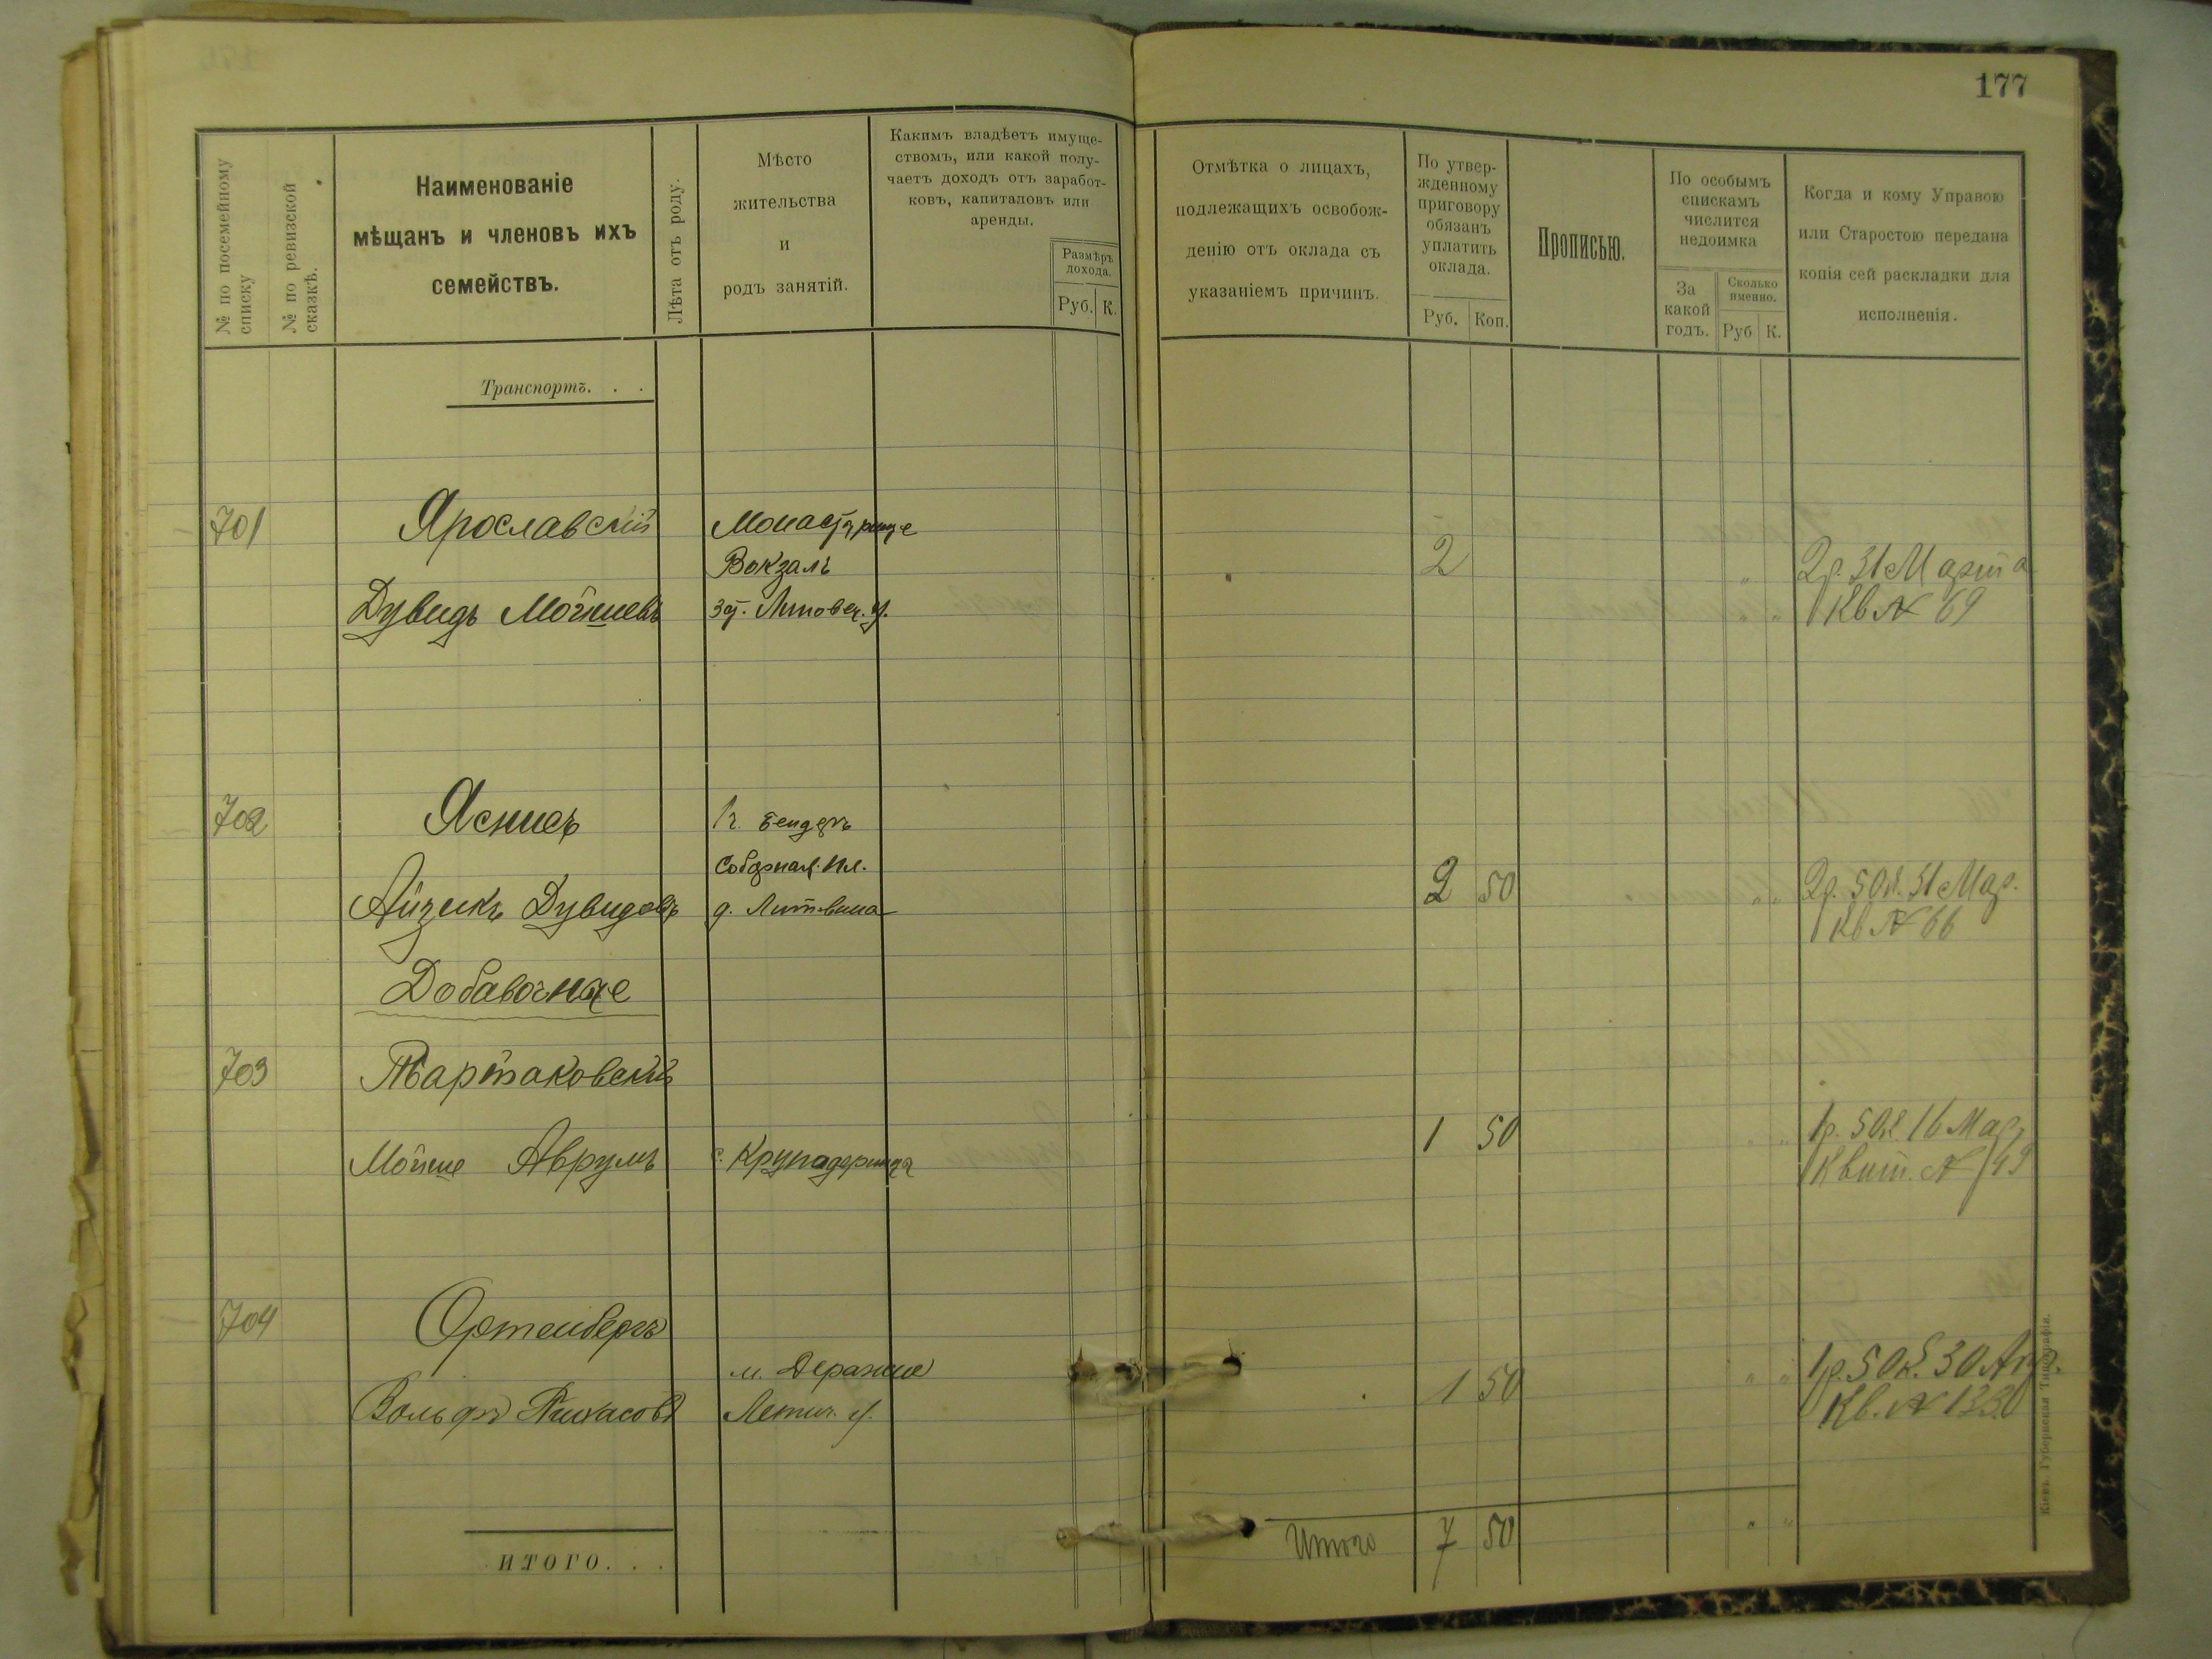 177
№ по посемейному списку
№ по ревизской сказкѣ.
Наименованіе
мѣщанъ и членовъ ихъ
семействъ.
Лѣта отъ роду.
Мѣсто
жительства
и
родъ занятій.
Какимъ владѣетъ имуще-
ствомъ, или какой полу-
чаетъ доходъ отъ заработ-
ковъ, капиталовъ или
аренды.
Размѣръ
дохода.
Руб. К.
Отмѣтка о лицахъ,
подлежащихъ освобож-
денію отъ оклада съ
указаніемъ причинъ.
По утвер-
жденному
приговору
обязанъ
уплатить
оклада.
Руб. Коп.
Прописью.
По особымъ
спискамъ
числится
недоимка
За
какой
годъ.
Сколько
именно.
Руб К.
Когда и кому Управою
или Старостою передана
копія сей раскладки для
исполненія.
Транспортъ. . .
701 Ярославскій Монастырище
Вокзалъ 2 2р. 31 Марта
Дувидъ Мойшевъ Липовец. у. Кв № 69
702 г. Бендеръ
Соборная Пл. 2 50 2р. 50к. 31 Мар.
Айзикъ Дувидовъ д. Литвина Кв № 66
Добавочные
703 Тартаковскій
1 50 1р. 50к. 16 Мар.
Мойше Аврумъ с. Крупадеринца Квит. № 49
704 Ортенбергъ
м. Деражне 1 50 1р. 50к. 30 Апр.
Вольфъ Пинхасовъ Летич. у. Кв. № 133
ИТОГО. . . Итого 7 50
Кіевъ. Губернская Типографія.